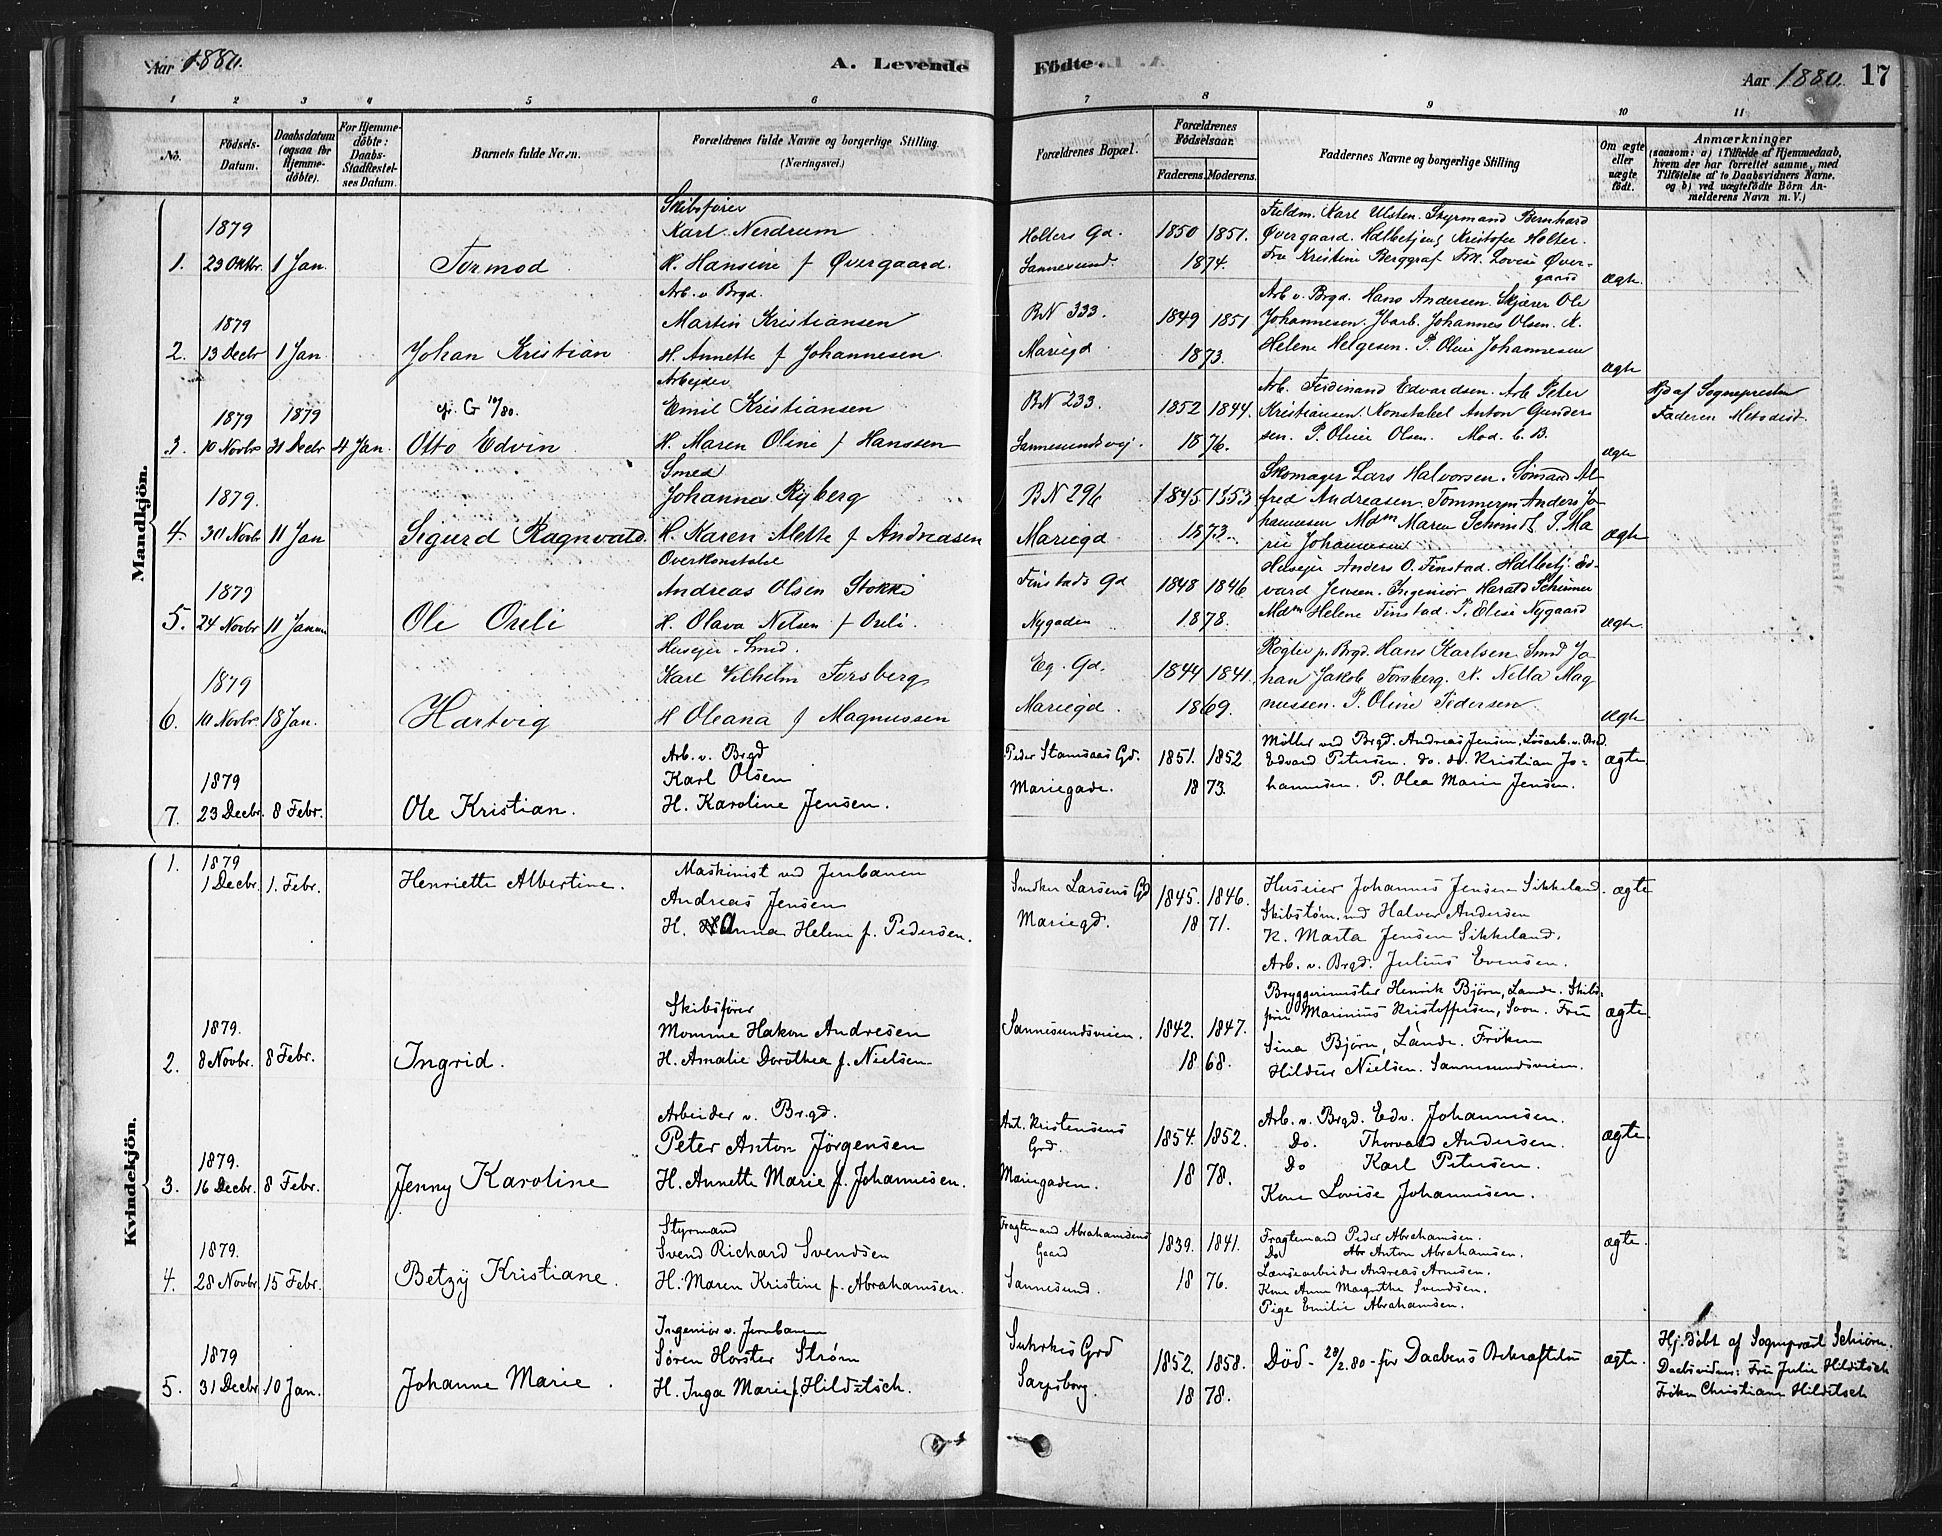 Aar 1880.
A. Levende
Födte.
Aar 1880.
17
1 2 3 4 5 6 7 8 9 10 11
No.
Födsels-Datum.
Daabsdatum (ogsaa for Hjemmedöbte).
For Hjemmedöbte: Daabs-Stadfæstelses Datum.
Barnets fulde Navn.
Forældrenes fulde Navne og borgerlige Stilling. (Næringsvei.)
Forældrenes Bopæl.
Forældrenes Födselsaar.
Faderens. Moderens.
Faddernes Navne og borgerlige Stilling
Om ægte eller uægte födt.
Anmærkninger
(saasom: a) i Tilfælde af Hjemmedaab,
hvem der har forrettet samme, med
Tilföielse af to Daabsvidners Navne.
og b) ved uægtefödte Börn Anmelderens Navn m. V.)
Mandkjön.
1. 1879 23 Oktbr. 1 Jan.
Tormod
Skibsfører
Karl Nerdrum
H. Hansine f Øvergaard.
Holters Gd.
Sannesund.
1850 1851.
1874.
Karl Ulsten. Styrmand Bernhard
Øvergaard. Hdlbetjent Kristofer Holter.
Fru Kristine Berggraf Frk. Lovise Øver-
gaard
ægte.
2. 1879 13 Decbr 1 Jan
Johan Kristian
Arb. v. Brgd.
Martin Kristiansen
H. Annette f Johannesen
BN 333.
Mariegd
1849 1851
1873.
Arb v. Brgd. Hans Andersen. Skjærer Ole
Johannesen. Johannes Olsen. K.
Helene Helgesen. P. Oline Johannesen
ægte
3. 1879 10 Novbr 1879 31 Decbr 4 Jan.
G 10/80.
Otto Edvin
Arbejder
Emil Kristiansen
H. Maren Oline f Hanssen
BN 233.
Sannesundsvej.
1852 1844.
1876.
Arb. Ferdinand Edvardsen. Arb Peter
Kristiansen. Konstabel Anton Gunder-
sen. P. Oline Olsen. Mod. E. B.
ægte
Hjd af Sognepresten
Faderen Metodist.
4. 1879. 30 Novbr 11 Jan
Sigurd Ragnvald.
Smed
Johannes Ryberg
H. Karen Mette f Andreasen
BN 296
Mariegd
1845 1853
1873.
Skomager Lars Halvorsen. Sömand Al-
fred Andreasen. Tommerm Anders Jo-
hannesen Mdm Maren Schmidt P. Ma-
rie Johannesen
ægte
5. 1879 24 Novbr 11 Januar
Ole Oreli
Overkonstabel
Andreas Olsen Stokke
H. Olava Nilsen f Oreli.
Finstads Gd
Nygaden
1848 1846
1878.
Husejer Anders O. Finstad. Hdlbetj. Ed-
vard Jensen. Ingeniør Harald
Mdm Helene Finstad. P. Elise Nygaard
ægte
6. 1879 10 Novbr. 18 Jan.
Hartvig
Husejer. Smed.
Karl Vilhelm Forsberg
H Oleana f Magnussen
Eg. Gd.
Mariegd.
1844 1841.
1869.
Røgter p. Brgd. Hans Karlsen. Smed Jo-
han Jakob Forsberg. K. Nella Mag
nussen. P. Oline Pedersen
ægte
7. 1879 23 Decbr. 8 Febr.
Ole Kristian.
Arb. v. Brgd
Karl Olsen
H. Karoline Jensen.
Peder Stamsaas Gd.
Mariegade.
1851. 1852
1873.
Møller ved Brgd. Andreas Jensen, Løsarb. v. Brd.
Edvard Petersen. do. do. Kristian Jo-
hannesen. P. Olea Marie Jensen.
ægte
Kvindekjön.
1. 1879 1 Decbr. 1. Febr.
Henriette Albertine.
Maskinist ved Jernbanen
Andreas Jensen
H. Anna Helene f. Pedersen.
Snedker Larsens Gd
Mariegd.
1845. 1846.
1871.
Huseier Johannes Jensen Sikkeland.
Skibstøm.md Halver Andersen
K. Marta Jensen Sikkeland.
Arb. v. Brgd. Julius Evensen.
ægte
2. 1879. 8 Novbr. 8 Febr.
Ingrid.
Skibsfører
Momme Hakon Andresen
H. Amalie Dorothea f. Nielsen.
Sannesundsveien.
1842. 1847.
1868.
Bryggerimester Henrik Björn, Lande. Skibs-
fører Marinius Kristoffersen, Soon. Fru
Sina Björn, Lande. Fröken
Hildur Nielsen. Sannesundsveien.
ægte.
3. 1879. 16 Decbr. 8 Febr.
Jenny Karoline
Arbeider v. Brgd.
Peter Anton Jörgensen
H. Annette Marie f. Johannesen.
Ant. Kristensens
Grd.
Mariegaden.
1854. 1852.
1878.
Arb. v. Brgd. Edv. Johannesen.
Do. Thorvald Andersen.
Do Karl Petersen.
Kone Lovise Johannesen.
ægte.
4. 1879. 28 Novbr. 15 Febr.
Betzy Kristiane.
Styrmand
Svend Richard Svendsen
H. Maren Kristine f. Abrahamsen.
Fragtemand Abrahamsens
Gaard
Sannesund.
1839. 1841.
1876.
Fragtemand Peder Abrahamsen.
Do Anton Abrahamsen.
Lænsearbeider Andreas Arnesen.
Kone Anne Margrethe Svendsen.
Pige Emilie Abrahamsen.
ægte.
5. 1879 31 Decbr. 10 Jan.
Johanne Marie.
Ingeniør v. Jernbanen
Søren Horster Strøm
H. Inga Marie f. Hilditsch.
Suhrkes Grd
Sarpsborg.
1852. 1858.
1878.
Død - 28/2.80 - før Daabens Bekræftelse
ægte.
Hj.døbt af Sogneprest Schiørn.
Daabsvidner: Fru Julie Hilditsch
Frøken Christiane Hilditsch